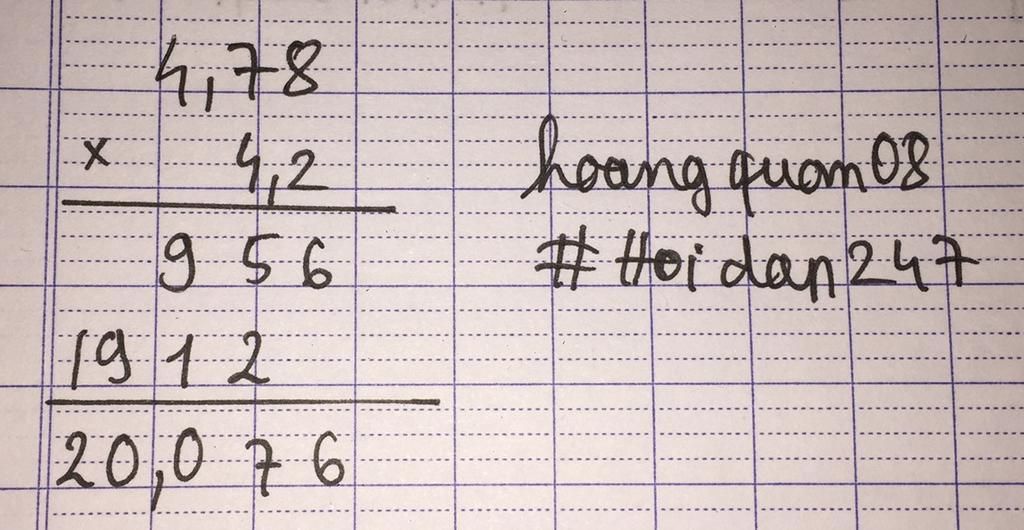 4,78
x 4,2
956
1912
20,076
hoang quan08
# Hoidan247